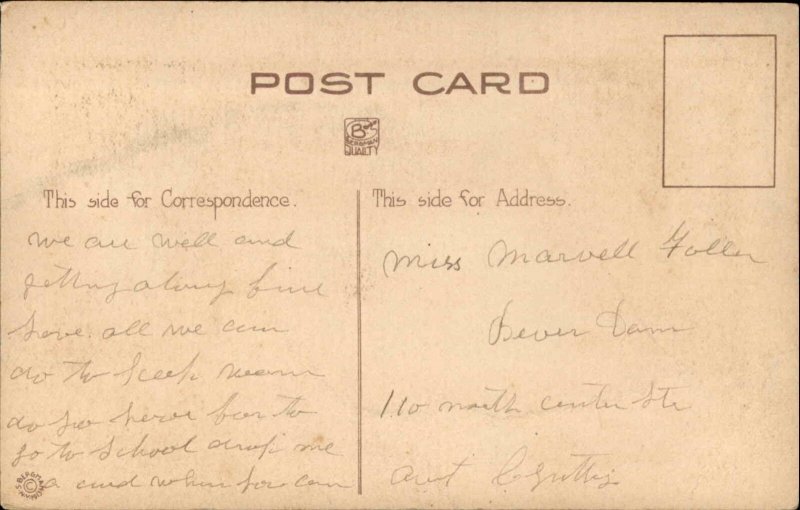 POST CARD
B
BERGMAN
QUALITY
This side for Correspondence.
we are well and
getting along fine
have all we can
do to keep warm
do you have far to
go to School drop me
a card when you can
S. BERGMAN N.Y.
©
This side for Address.
Miss Marvell
Bever Dam
110 north center Str
aunt